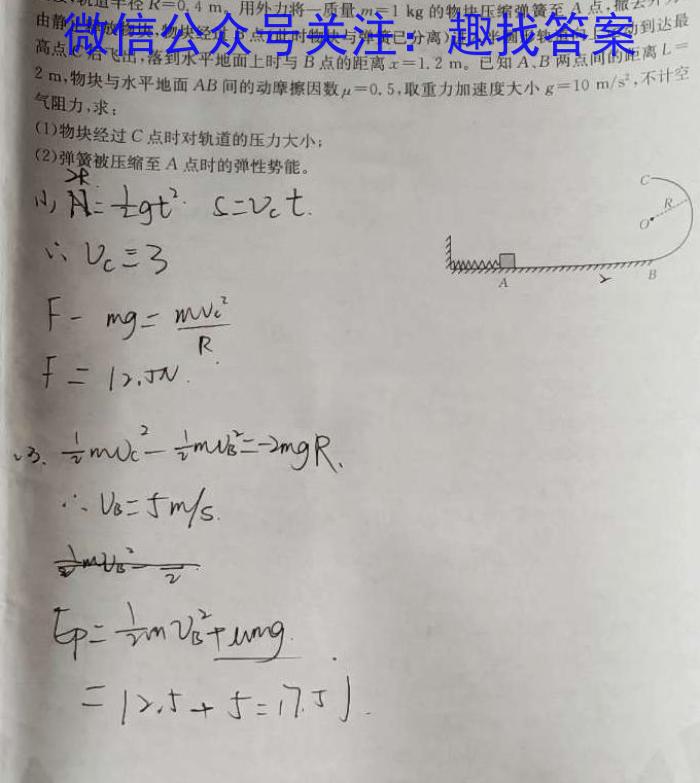 轨道半径R=0.4 m。用外力将一质量m=1 kg的物块压缩弹簧至A点，撤去外力
微信公众号关注：趣找答案
高点C后飞出，落到水平地面上时与B点的距离x=1.2 m。已知A、B两点间的距离L=
2 m，物块与水平地面AB间的动摩擦因数μ=0.5，取重力加速度大小g=10 m/s²，不计空
气阻力，求：
(1)物块经过C点时对轨道的压力大小；
(2)弹簧被压缩至A点时的弹性势能。
2R
(1) H=½gt² S=Vct.
∴ Vc=3
F-mg=mVc²/R
F=12.5N.
½mVc²-½mVB²=-2mgR.
∴ VB=5m/s.
½mVB²-
Ep=½mVB²+μmg.
=12.5+5=17.5J.
C
R
O
A
B